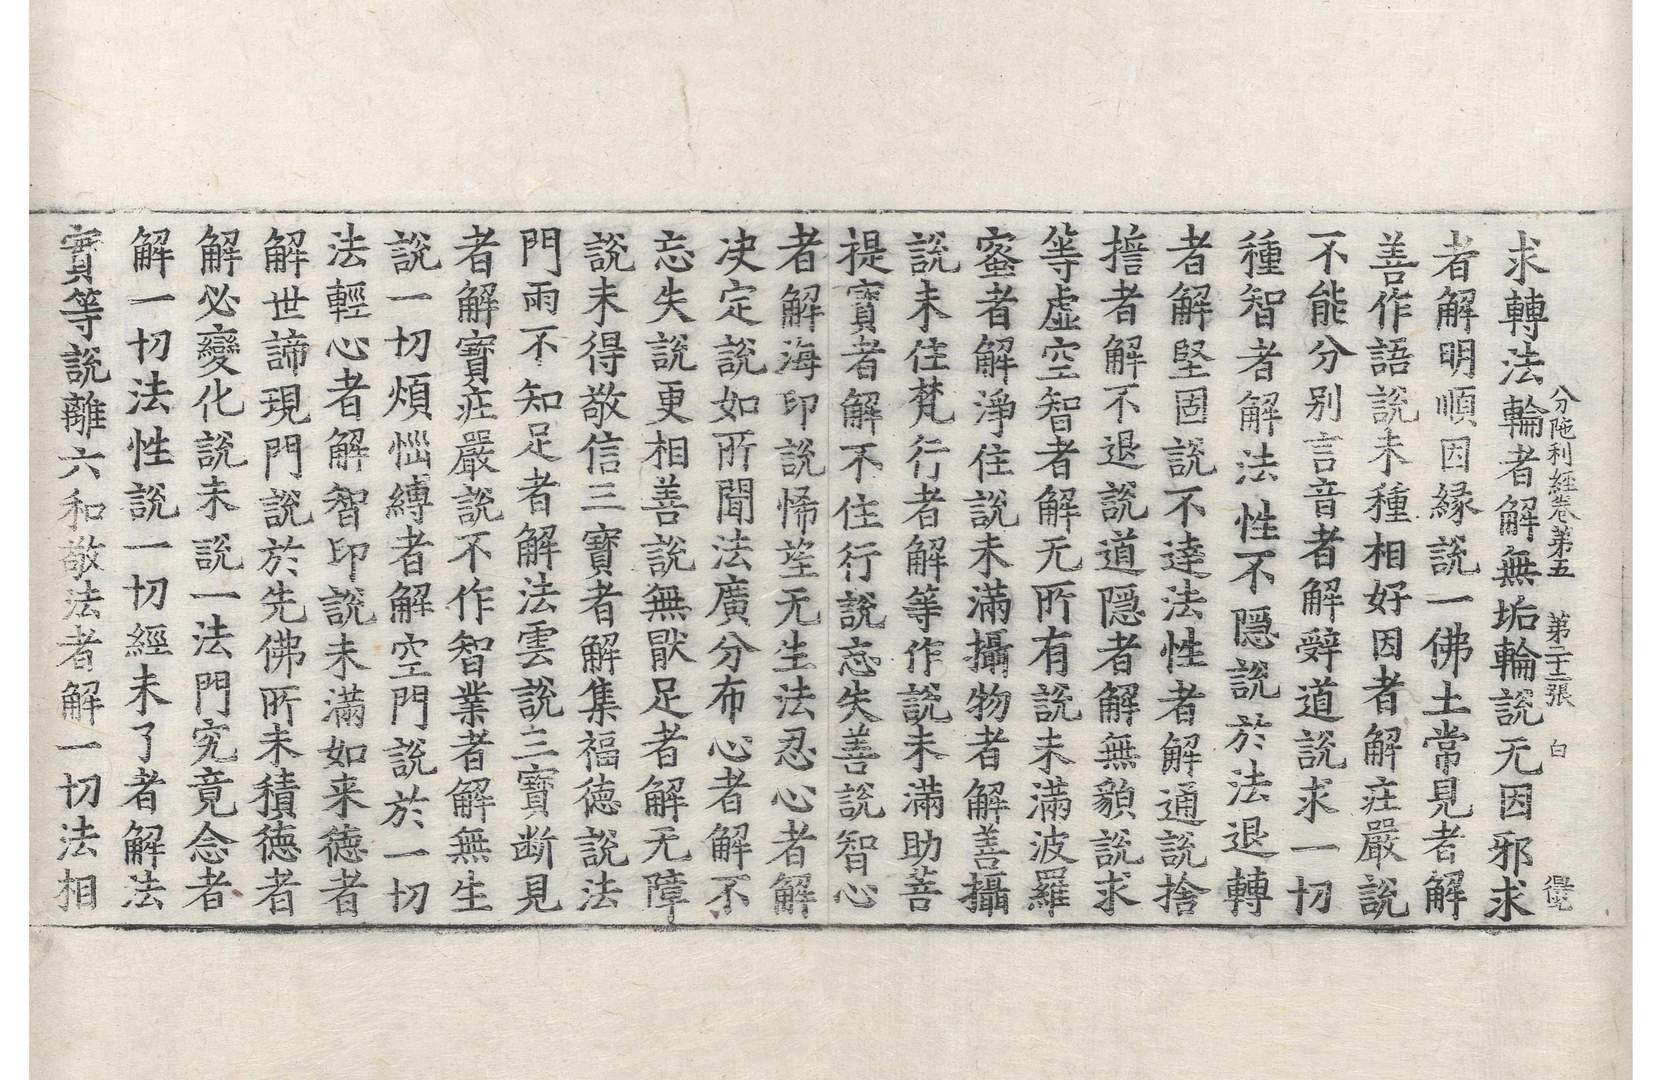 分陁利經卷第五 第二十三張 白
求轉法輪者解無垢輪說无因邪求
者解明順因緣說一佛土常見者解
善作語說未種相好因者解疘嚴說
不能分別言音者解辤道說求一切
種智者解法性不隱說於法退轉
者解堅固說不達法性者解通說捨
擔者解不退說道隱者解無貌說求
等虛空智者解无所有說未滿波羅
蜜者解淨住說未滿攝物者解善攝
說未住梵行者解等作說未滿助菩
提寶者解不住行說忘失善說智心
者解海印說悕望无生法忍心者解
决定說如所聞法廣分布心者解不
忘失說更相善說無猒足者解无障
說未得敬信三寶者解集福德說法
門雨不知足者解法雲說三寶断見
者解寶疘嚴說不作智業者解無生
說一切煩惱縛者解空門說於一切
法輕心者解智印說未滿如来德者
解世諦現門說於先佛所未積德者
解必變化說未說一法門究竟念者
解一切法性說一切經未了者解法
實等說離六和敬法者解一切法相